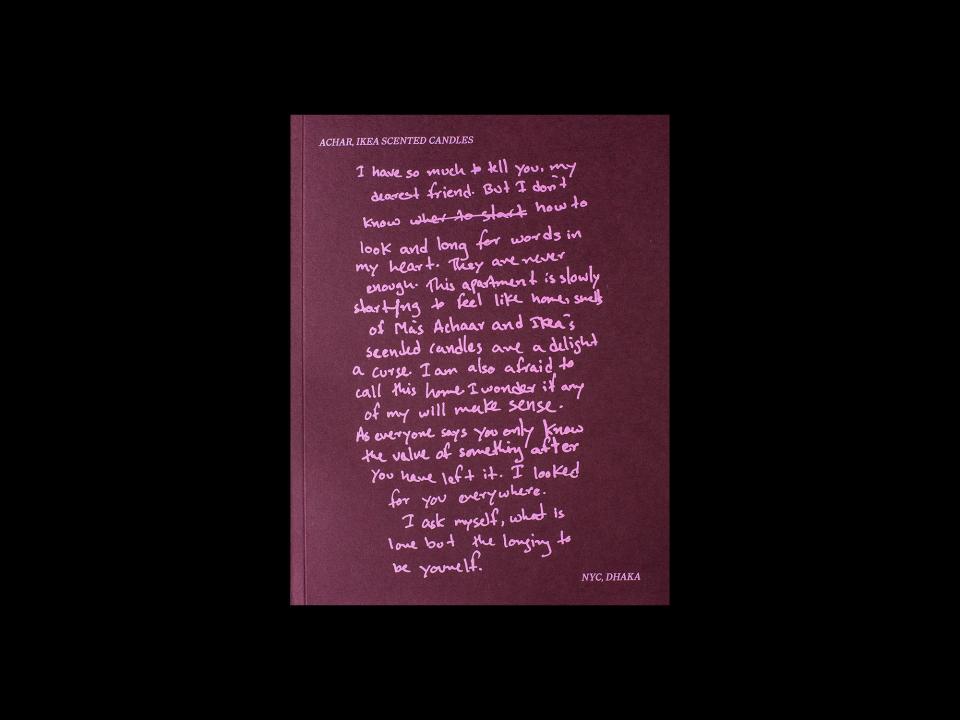 ACHAR, IKEA SCENTED CANDLES
I have so much to tell you, my
dearest friend. But I don't
know wher to start how to
look and long for words in
my heart. They are never
enough. This apartment is slowly
starting to feel like home, smells
of Ma's Achaar and Ikea's
scented candles are a delight
a curse. I am also afraid to
call this home. I wonder if any
of my will make sense.
As everyone says you only know
the value of something after
you have left it. I looked
for you everywhere.
I ask myself, what is
love but the longing to
be yourself.
NYC, DHAKA